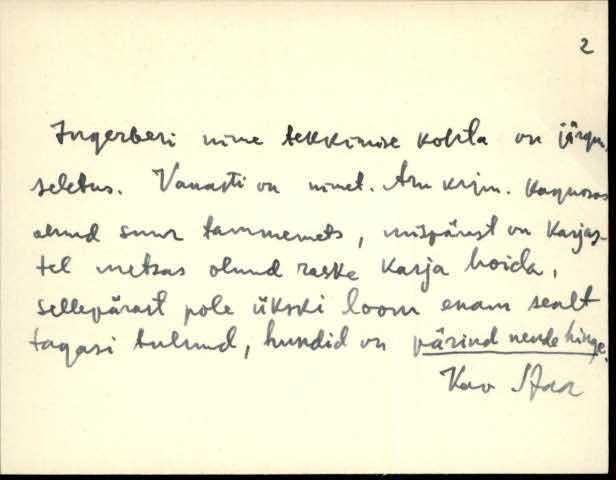 2
Ingerberi nime tekkimise kohta on järgm.
seletus. Vanasti on nimet.
olnud suur tammemets, mispärast on karjas-
tel metsas olnud raske karja hoida,
sellepärast pole ükski loom enam sealt
tagasi tulnud, hundid on pärind nende hinge.